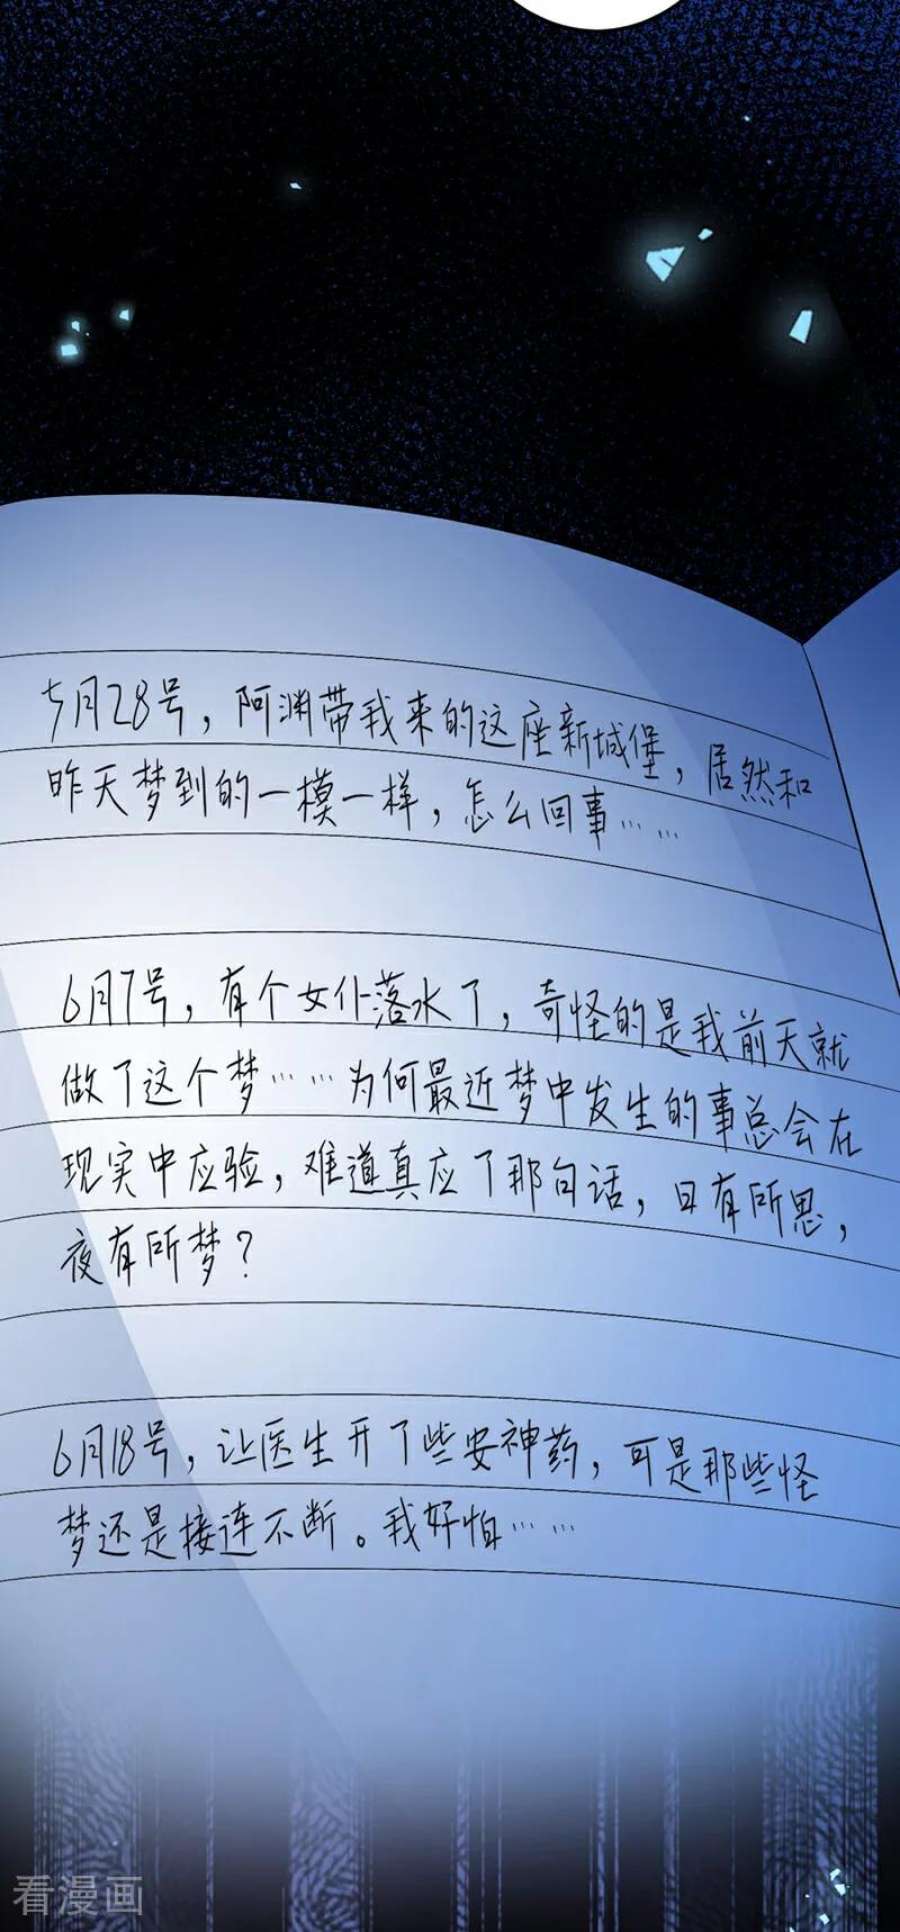 5月28号，阿渊带我来的这座新城堡，居然和
昨天梦到的一模一样，怎么回事……
6月7号，有个女仆落水了，奇怪的是我前天就
做了这个梦……为何最近梦中发生的事总会在
现实中应验，难道真应了那句话，日有所思，
夜有所梦？
6月18号，让医生开了些安神药，可是那些怪
梦还是接连不断。我好怕……
看漫画